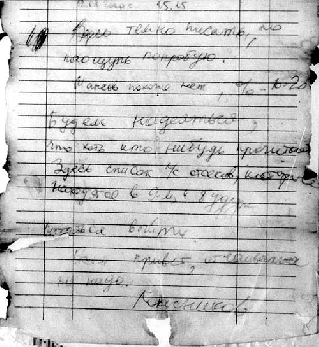 15.15
Здесь темно писать, но
наощупь попробую.
Шансов похоже нет, % 10-20
Будем надеяться,
что хоть кто-нибудь прочитает
Здесь список л/с отсеков, которые
находятся в 9-м и будут
выйти
привет, отчаиваться
не надо.
Колесников